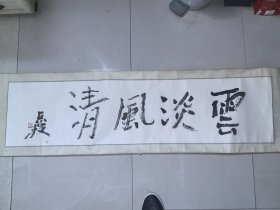 雲淡風清